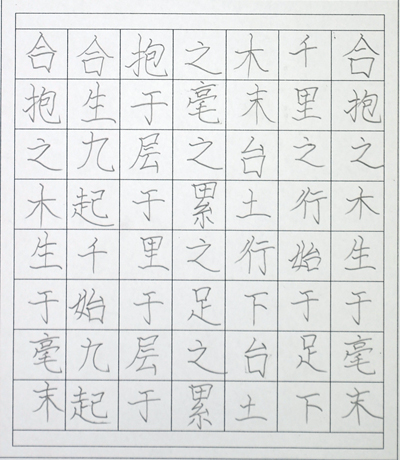 合合抱之木千合
抱生于毫末里抱
之九层之台之之
木起于累土行木
生千里之行始生
于始于足下于于
毫九层之台足毫
末起于累土下末